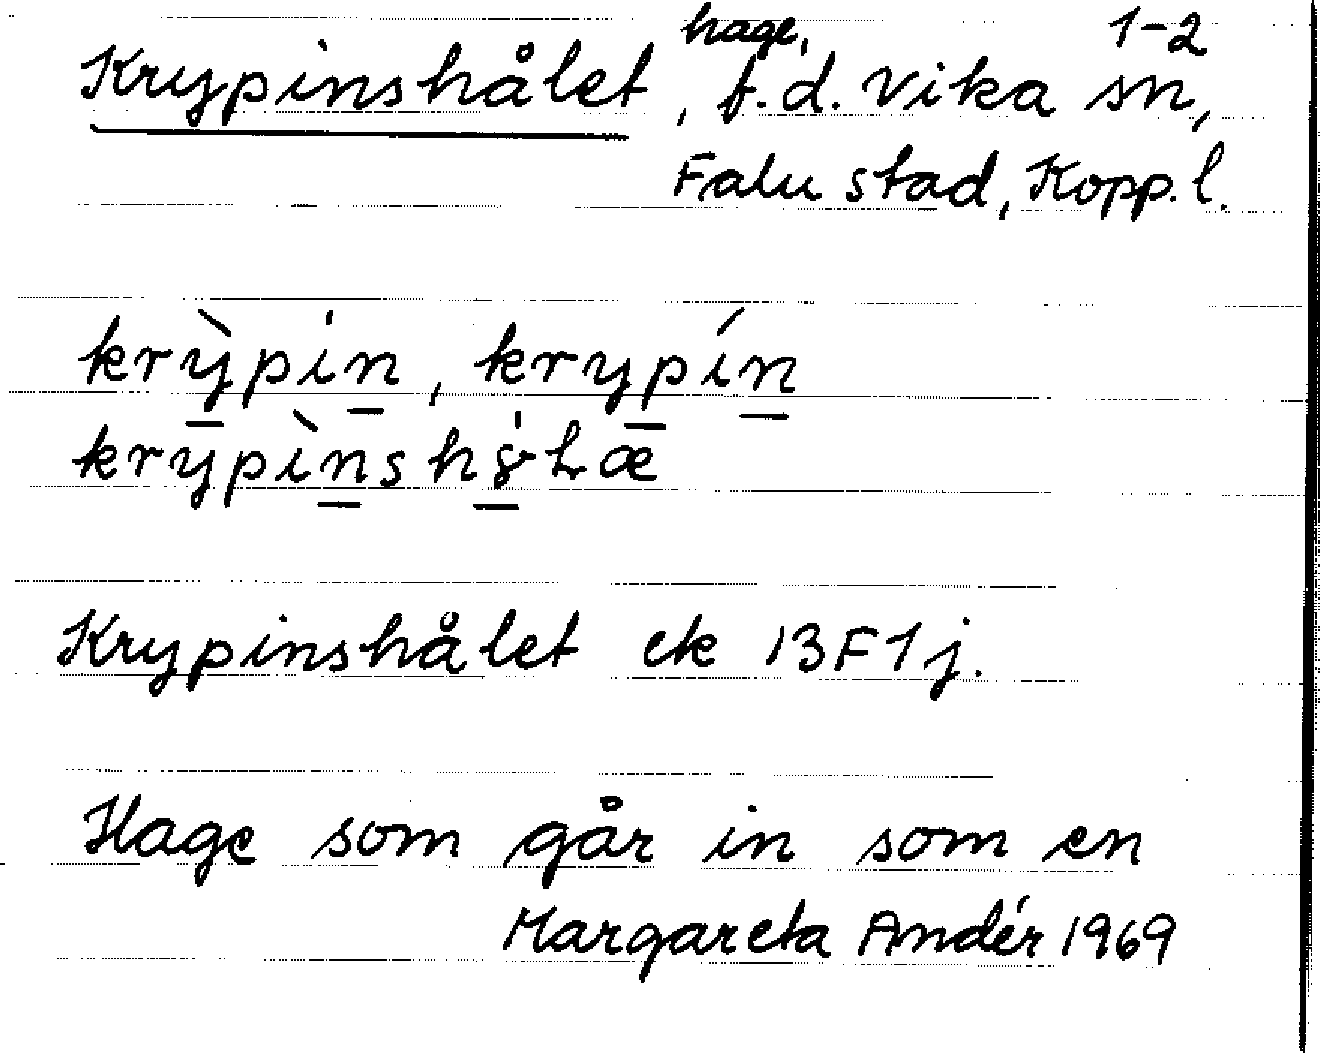 hage, 1-2
Krypinshålet, f.d. Vika sn,
Falu stad, Kopp.l.
krỳpin, krypín
krypìns
Krypinshålet ek 13F1j.
Hage som går in som en
Margareta Andér 1969